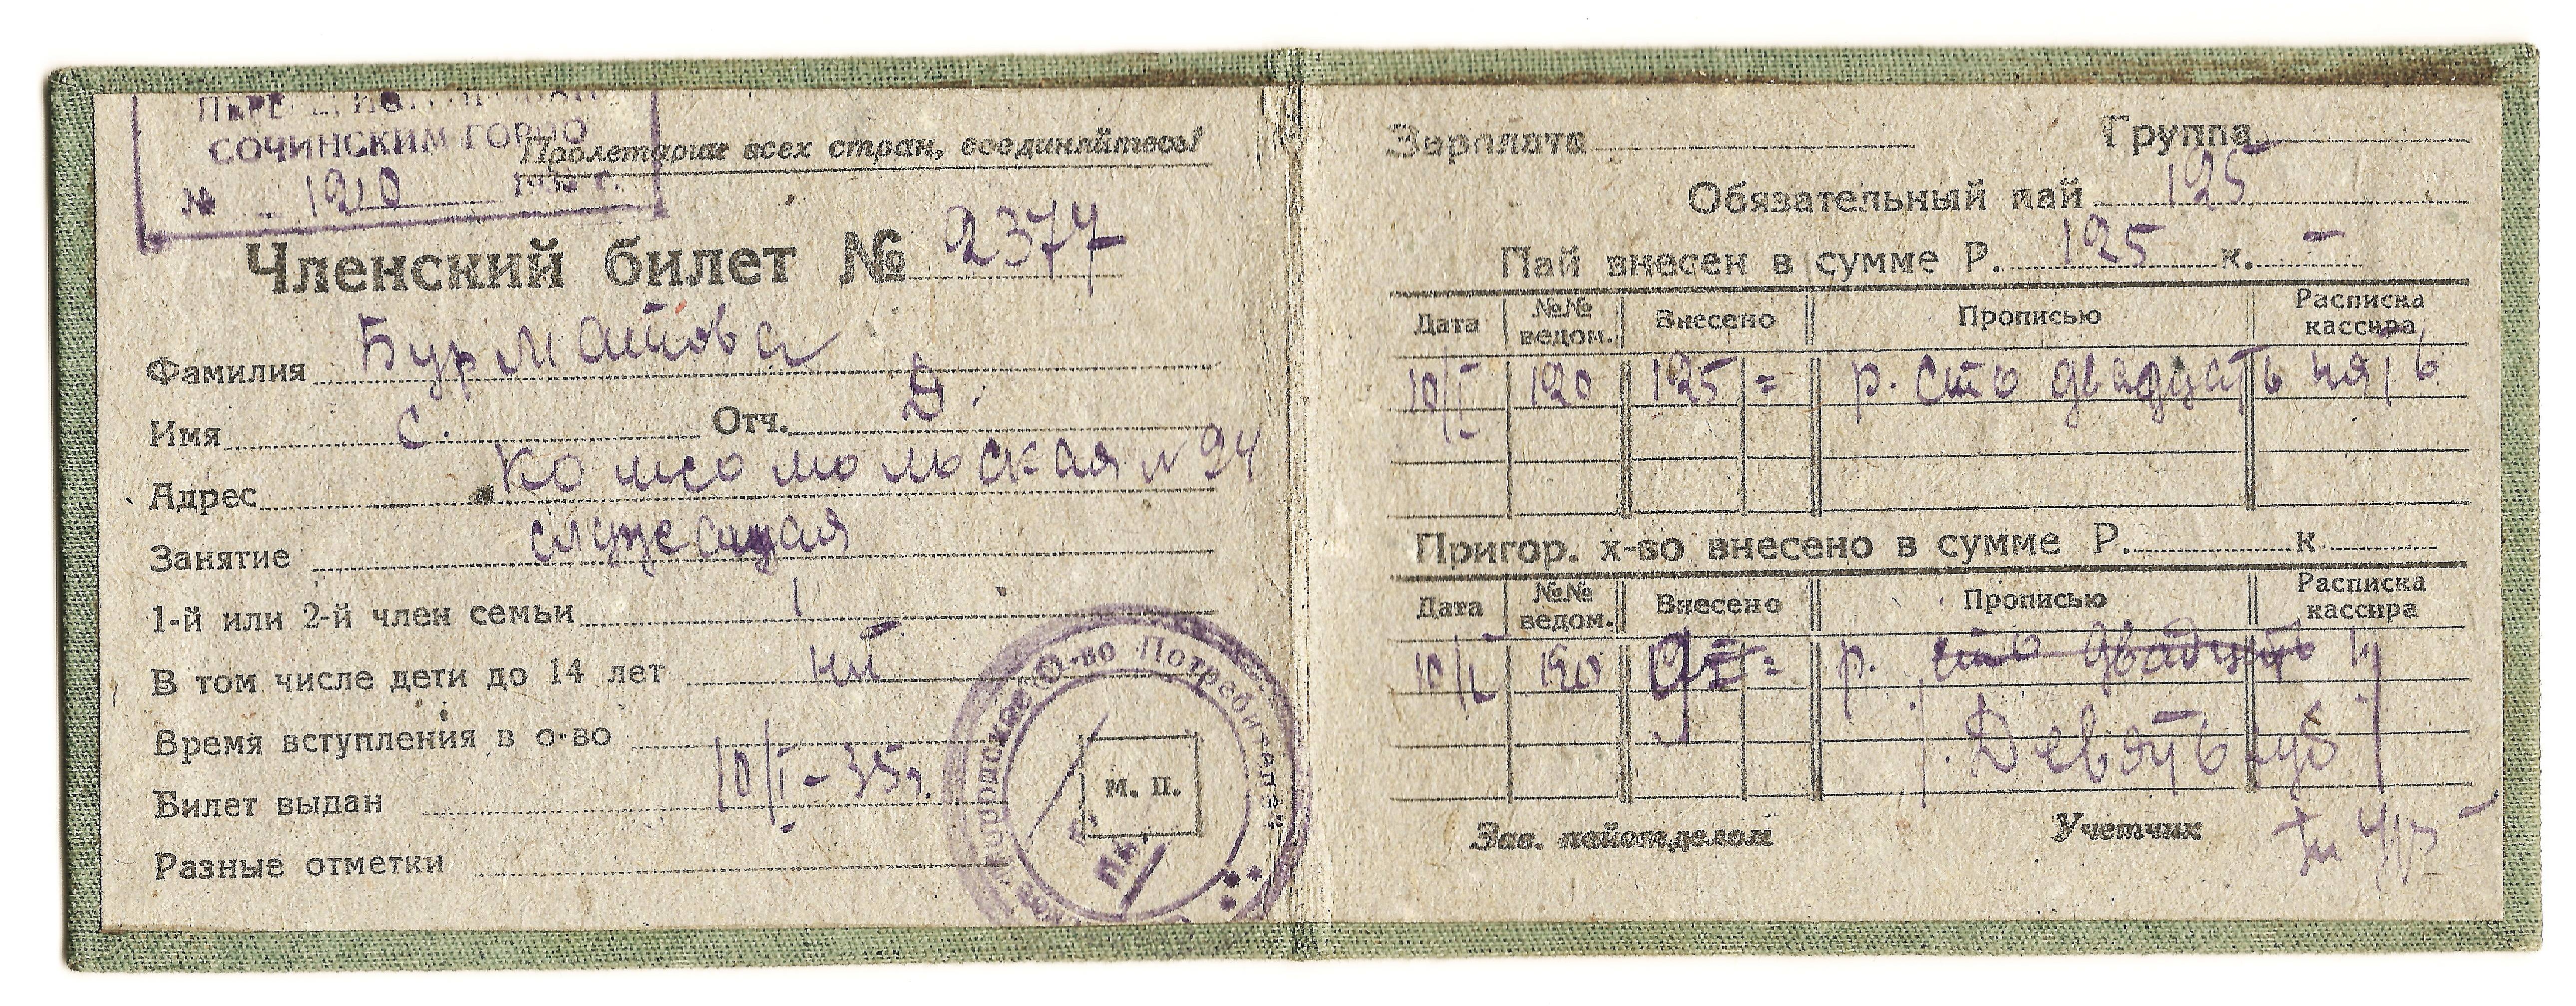 СОЧИНСКИМ ГОРПО
№ 1210 193 г.
Пролетарии всех стран, соединяйтесь!
Членский билет № 2377
Фамилия Бурматова
Имя С. Отч. Д.
Адрес Комсомольская № 94
Занятие служащая
1-й или 2-й член семьи 1
В том числе дети до 14 лет нит
Время вступления в о-во
Билет выдан 10/I-35г.
Разные отметки
О-во Потребителей
м. п.
Зарплата Группа
Обязательный пай 125
Пай внесен в сумме Р. 125 к. —
Дата №№ ведом. Внесено Прописью Расписка кассира
10/I 120 125 = р. сто двадцать пять
Пригор. х-во внесено в сумме Р. к
Дата №№ ведом. Внесено Прописью Расписка кассира
10/I 120 9 = р. сто двадцать
Девять руб
Зав. пайотделом Учетчик